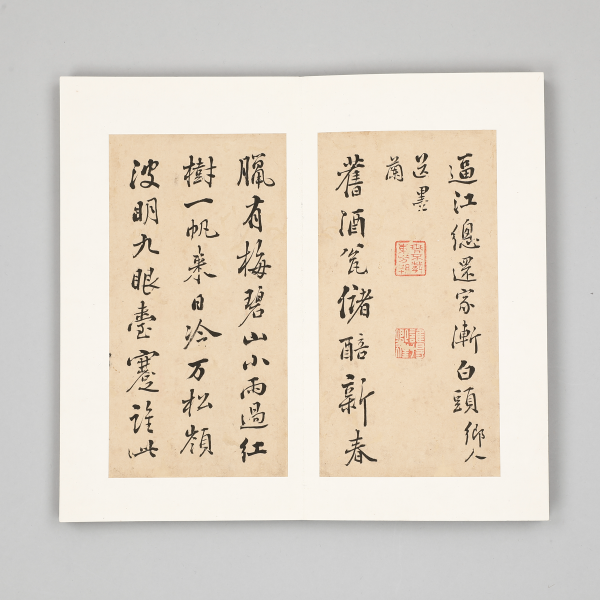 逼江總還家漸白頭鄉人
送墨
蘭
舊酒瓮儲醅新春
臘有梅碧山小雨過紅
樹一帆來日冷万松嶺
波明九眼臺寒誰此